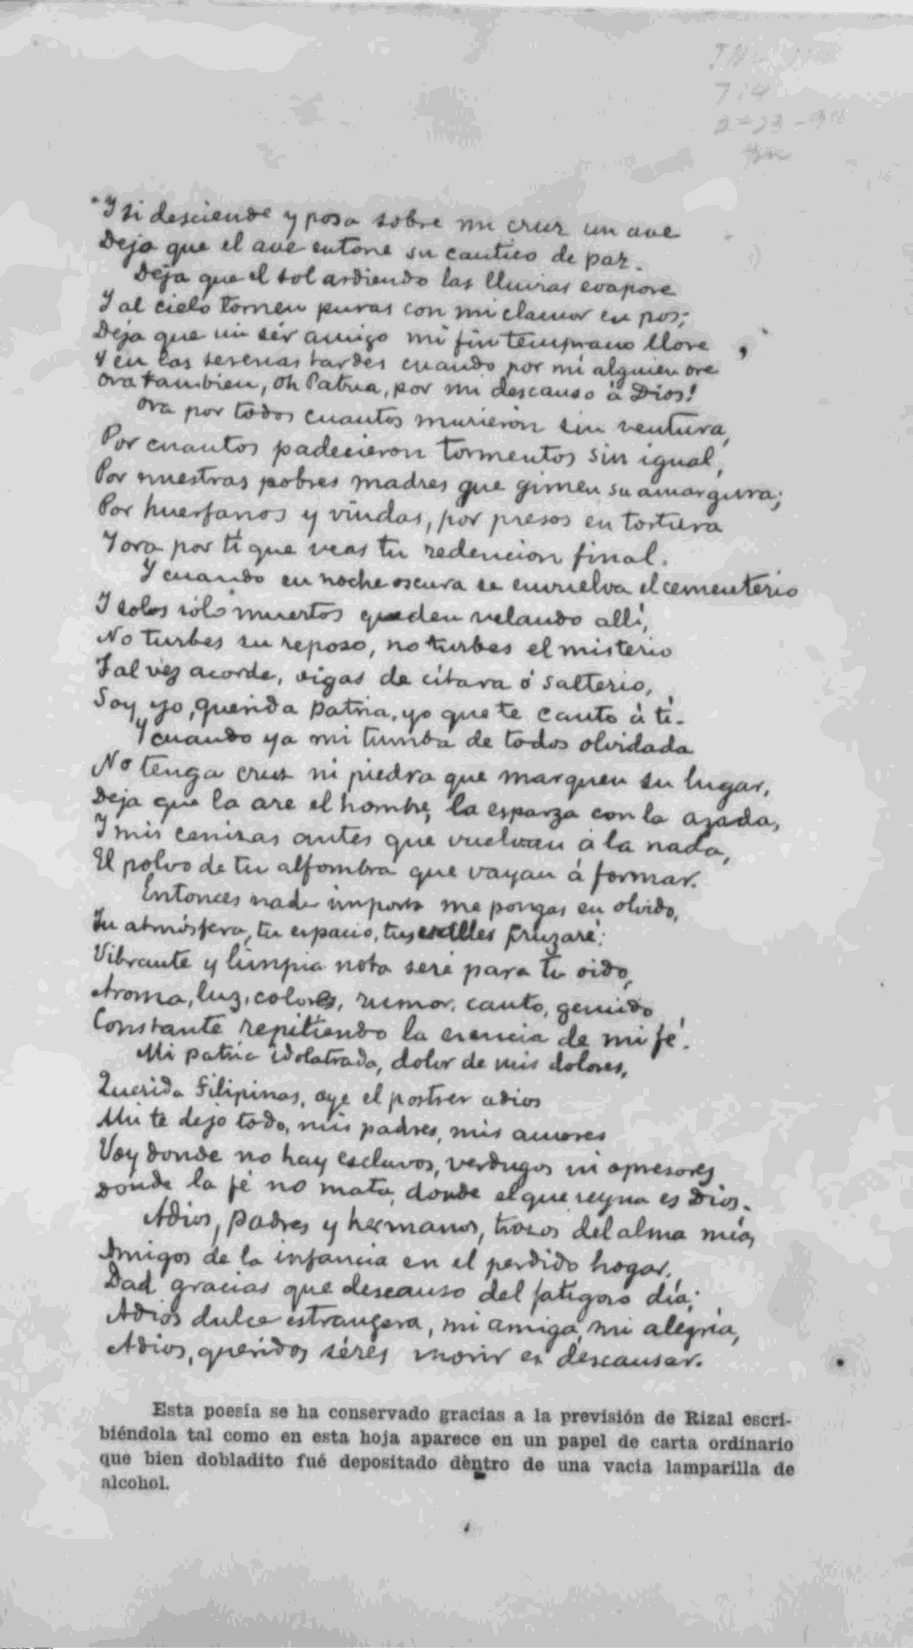 Y si desciende y posa sobre mi cruz un ave
Deja que el ave entone su cantico de paz.
Deja que el sol ardiendo las lluvias evapore
Y al cielo tornen puras con mi clamor en pos;
Deja que un sér amigo mi fin temprano llore
Y en las serenas tardes cuando por mi alguien ore
Ora tambien, oh Patria, por mi descanso á Dios!
Ora por todos cuantos murieron sin ventura,
Por cuantos padecieron tormentos sin igual,
Por nuestras pobres madres que gimen su amargura;
Por huerfanos y viudas, por presos en tortura
Y ora por ti que veas tu redencion final.
Y cuando en noche oscura se envuelva el cementerio
Y solos sólo muertos queden velando allí,
No turbes su reposo, no turbes el misterio
Tal vez acorde, oigas de citara ó salterio,
Soy yo, querida Patria, yo que te canto á ti.
Y cuando ya mi tumba de todos olvidada
No tenga cruz ni piedra que marquen su lugar,
Deja que la are el hombre, la esparza con la azada,
Y mis cenizas antes que vuelvan á la nada,
El polvo de tu alfombra que vayan á formar.
Entonces nada importa me pongas en olvido,
Tu atmósfera, tu espacio, tus valles cruzaré;
Vibrante y limpia nota seré para tu oido,
Aroma, luz, colores, rumor, canto, gemido
Constante repitiendo la esencia de mi fé.
Mi patria idolatrada, dolor de mis dolores,
Querida Filipinas, oye el postrer adios
Ahi te dejo todo, mis padres, mis amores
Voy donde no hay esclavos, verdugos ni opresores
Donde la fé no mata, donde el que reyna es Dios.
Adios, padres y hermanos, trozos del alma mía,
Amigos de la infancia en el perdido hogar,
Dad gracias que descanso del fatigoso día;
Adios dulce estrangera, mi amiga, mi alegria,
Adios, queridos séres morir es descansar.
Esta poesía se ha conservado gracias a la previsión de Rizal escri-
biéndola tal como en esta hoja aparece en un papel de carta ordinario
que bien dobladito fué depositado dentro de una vacia lamparilla de
alcohol.